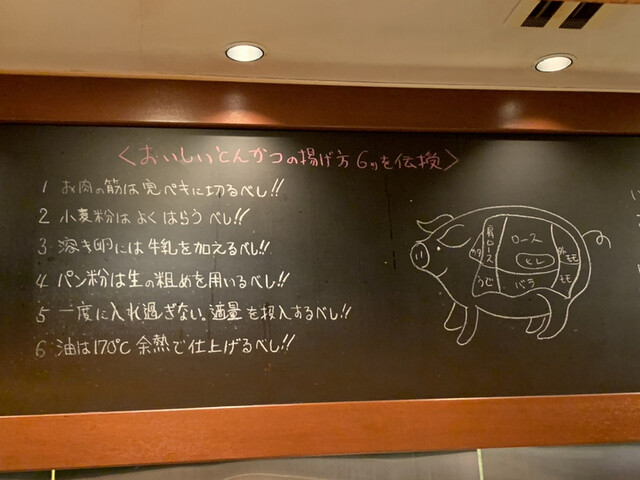 <おいしいとんかつの揚げ方 6ツを伝授>
1 お肉の筋は完ペキに切るべし!!
2 小麦粉はよくはらうべし!!
3 溶き卵には牛乳を加えるべし!!
4 パン粉は生の粗めを用いるべし!!
5 一度に入れ過ぎない、適量を投入するべし!!
6 油は170℃ 余熱で仕上げるべし!!
肩ロース
ロース
ヒレ
カタ
うで
バラ
外モモ
モモ